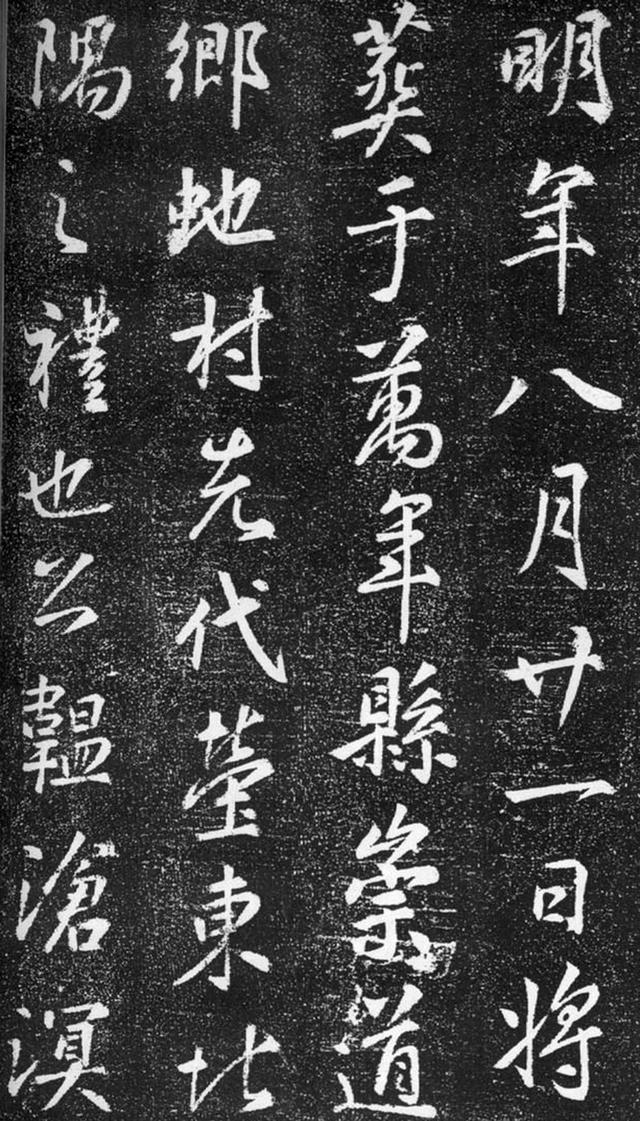 明年八月廿一日將
葬于萬年縣崇道
鄉虵村先代塋東北
隅之禮也公韞滄溟